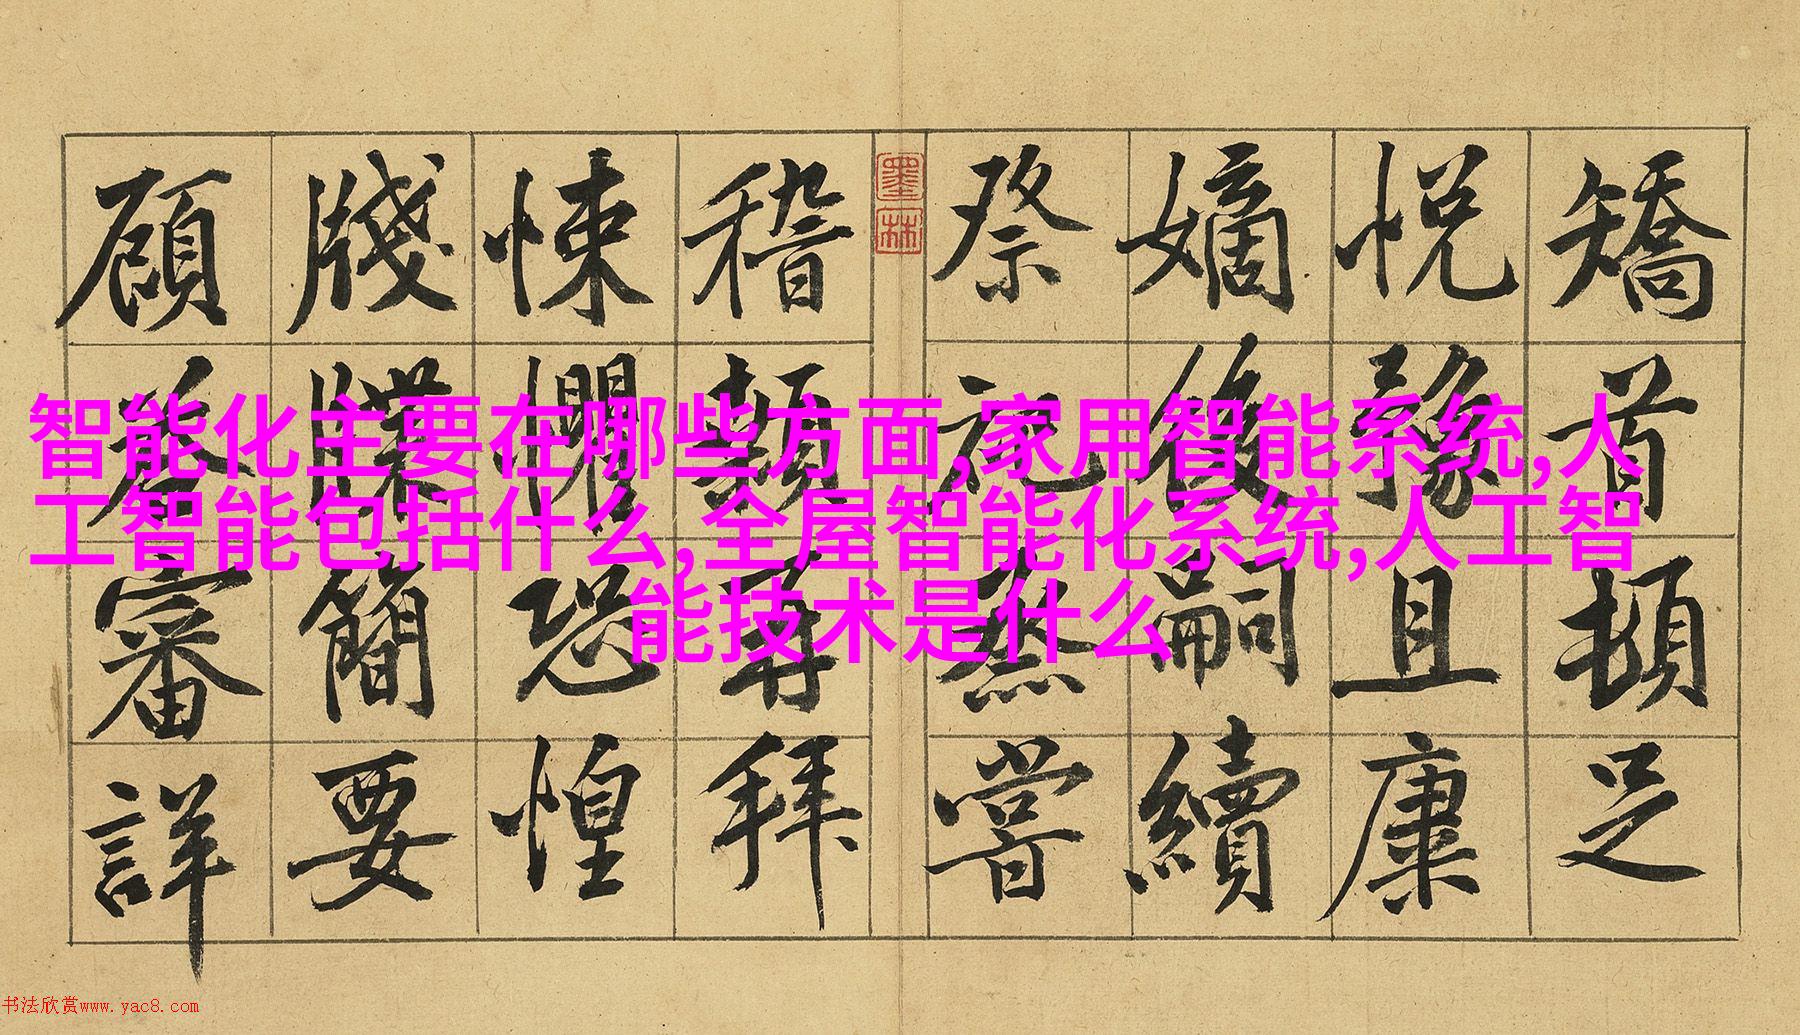 矯首頓足
悦豫且康
嫡後嗣續
祭祀蒸嘗
墨林
稽顙再拜
悚懼恐惶
牋牒簡要
顧答審詳
智能化主要在哪些方面,家用智能系统,人
工智能包括什么,全屋智能化系统,人工智
能技术是什么
书法欣赏www.yac8.com